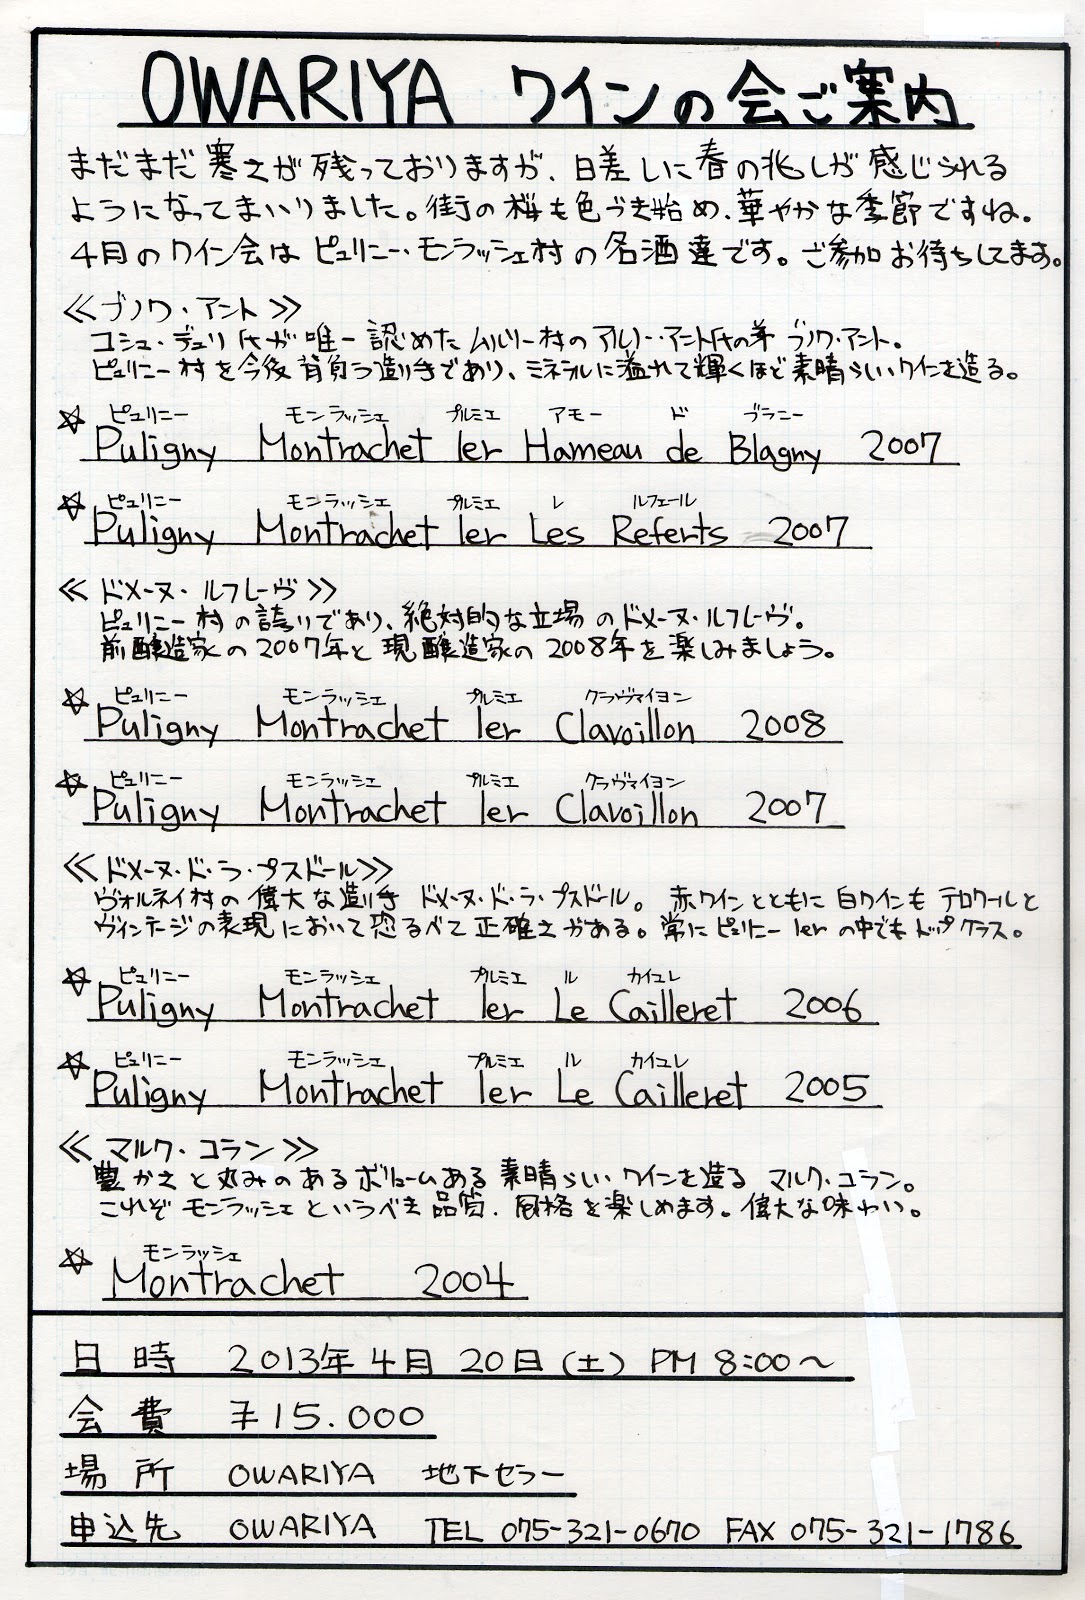 OWARIYA ワインの会ご案内
まだまだ寒さが残っておりますが、日差しに春の兆しが感じられる
ようになってまいりました。街の桜も色づき始め、華やかな季節ですね。
4月のワイン会はピュリニー・モンラッシェ村の名酒達です。ご参加お待ちしてます。
≪ブノワ・アント≫
コシュ・デュリ氏が唯一認めたムルソー村のアルノー・アント氏の弟ブノワ・アント。
ピュリニー村を今後背負う造り手であり、ミネラルに溢れて輝くほど素晴らしいワインを造る。
ピュリニー モンラッシェ プルミエ アモー ド ブラニー
☆ Puligny Montrachet 1er Hameau de Blagny 2007
ピュリニー モンラッシェ プルミエ レ ルフェール
☆ Puligny Montrachet 1er Les Referts 2007
≪ドメーヌ・ルフレーヴ≫
ピュリニー村の誇りであり、絶対的な立場のドメーヌ・ルフレーヴ。
前醸造家の2007年と現醸造家の2008年を楽しみましょう。
ピュリニー モンラッシェ プルミエ クラヴァイヨン
☆ Puligny Montrachet 1er Clavoillon 2008
ピュリニー モンラッシェ プルミエ クラヴァイヨン
☆ Puligny Montrachet 1er Clavoillon 2007
≪ドメーヌ・ド・ラ・プスドール≫
ヴォルネイ村の偉大な造り手ドメーヌ・ド・ラ・プスドール。赤ワインとともに白ワインもテロワールと
ヴィンテージの表現において恐るべて正確さがある。常にピュリニー1erの中でもトップクラス。
ピュリニー モンラッシェ プルミエ ル カイユレ
☆ Puligny Montrachet 1er Le Cailleret 2006
ピュリニー モンラッシェ プルミエ ル カイユレ
☆ Puligny Montrachet 1er Le Cailleret 2005
≪マルク・コラン≫
豊かさと丸みのあるボリュームある素晴らしいワインを造るマルク・コラン。
これぞモンラッシェというべき品質、風格を楽しめます。偉大な味わい。
モンラッシェ
☆ Montrachet 2004
日時 2013年4月20日(土) PM 8:00〜
会費 ¥15.000
場所 OWARIYA 地下セラー
申込先 OWARIYA TEL 075-321-0670 FAX 075-321-1786